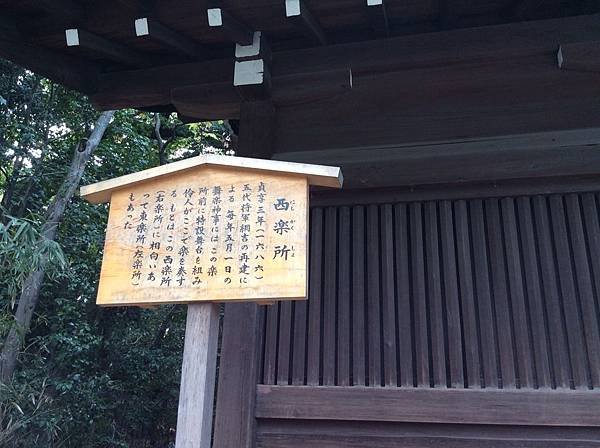 西楽所
にしがくしょ
貞享三年(一六八六)
五代将軍綱吉の再建に
よる 毎年五月一日の
舞楽神事にはこの楽
所前に特設舞台を組み
伶人がここで楽を奏す
る もとはこの西楽所
(右楽所)に相向いあ
って東楽所(左楽所)
もあった